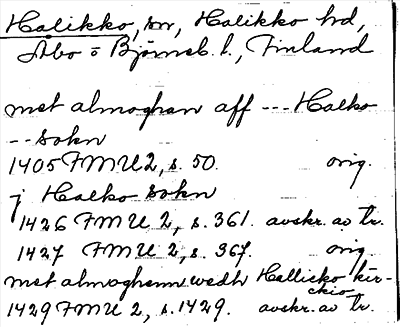 Halikko, sn, Halikko hd,
Åbo o Björneb. l., Finland
met almoghan aff --- Halko
-- sokn
1405 FMU 2, s. 50. orig.
j Halko sokn
1426 FMU 2, s. 361. avskr. av tr.
1427 FMU 2, s. 367. orig
met almoghenn wedh Hallicko kir-
ckio
1429 FMU 2, s. 1429. avskr. av tr.